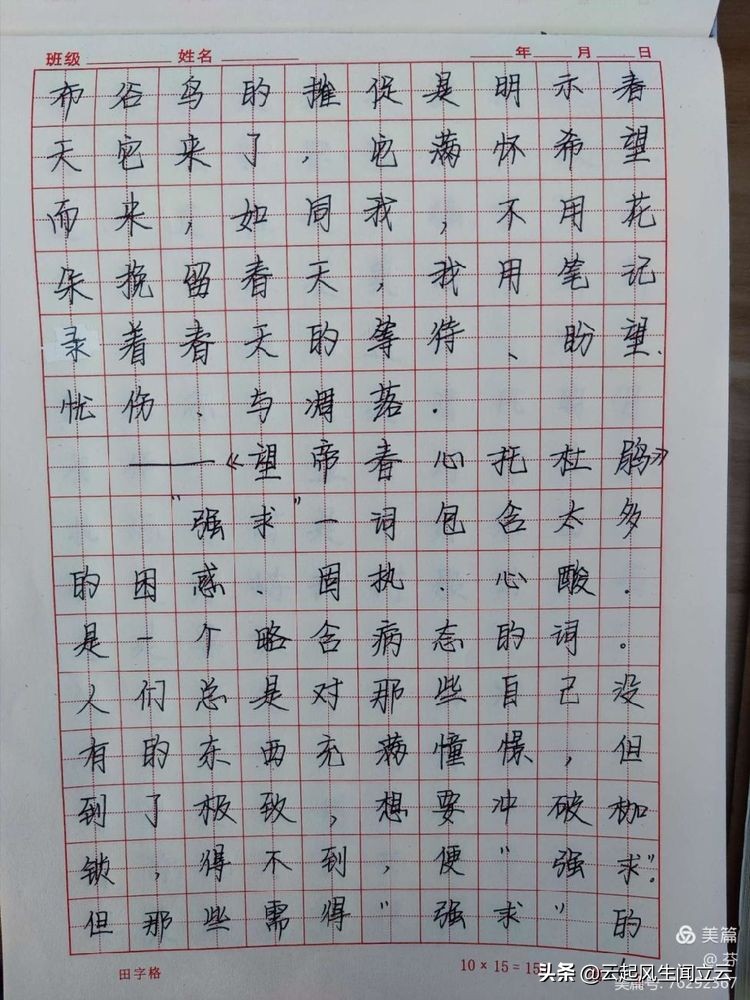 班级 姓名 年 月 日
布谷鸟的摧促是明示春
天它来了,它满怀希望
而来,如同我,不用花
朵挽留春天,我用笔记
录着春天的等待、盼望、
忧伤、与凋落.
——《望帝春心托杜鹃》
"强求"一词包含太多
的困惑、固执、心酸.
是一个略含病态的词。
人们总是对那些自己没
有的东西充满憧憬,但
到了极致,想要冲破枷
锁,得不到,便"强求".
但那些需得"强求"的
田字格
10×15=15
美篇
@芬
美篇号:76292367
头条 @云起风生闻立云